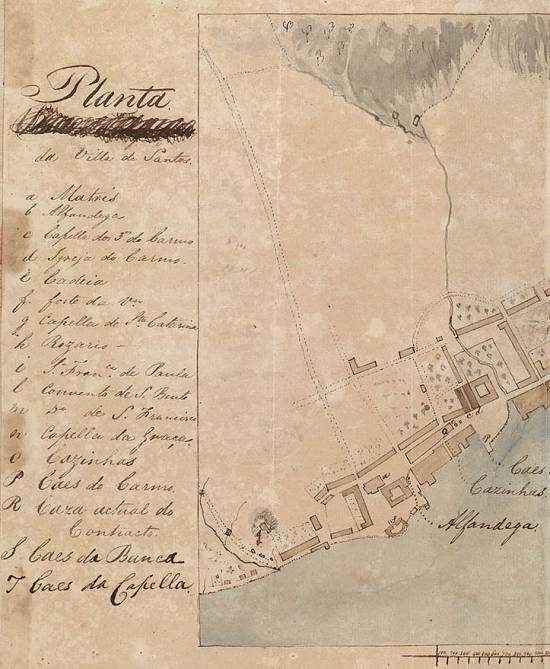 Planta
da Villa de Santos.
a Matris
b Alfandega
c Capella dos 3os do Carmo
d Igreja do Carmo.
E Cadeia
f. forte da
g Capella de Sta Caterina
h Rozario –
i Sn Franco de Paula
l Convento de S. Bento
m Do de S. Francisco
n Capella da Graça,
o Cazinhas
P Caes do Carmo.
R Caza actual do
Contracto.
S Caes da Banca
T Caes da Capella.
Caes
Cazinhas.
Alfandega.